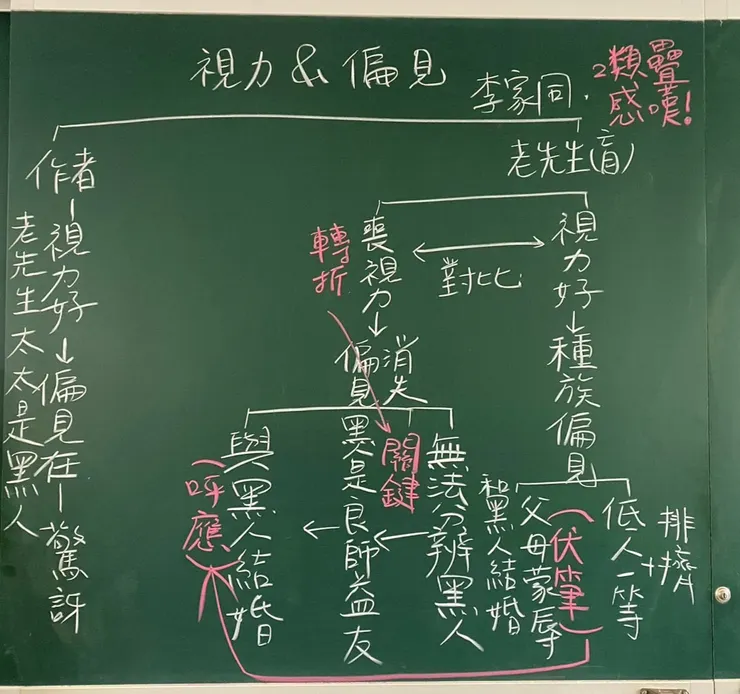 視力&偏見
李家同.
2類疊
感嘆!
老先生(盲)
視力好→種族偏見
低人一等
+排擠
和黑人結婚
父母蒙辱
(伏筆)
對比
轉折
喪視力→偏見消失
無法分辨黑人
關鍵
黑人是良師益友
與黑人結婚
(呼應)
作者-視力好→偏見在-驚訝
老先生太太是黑人